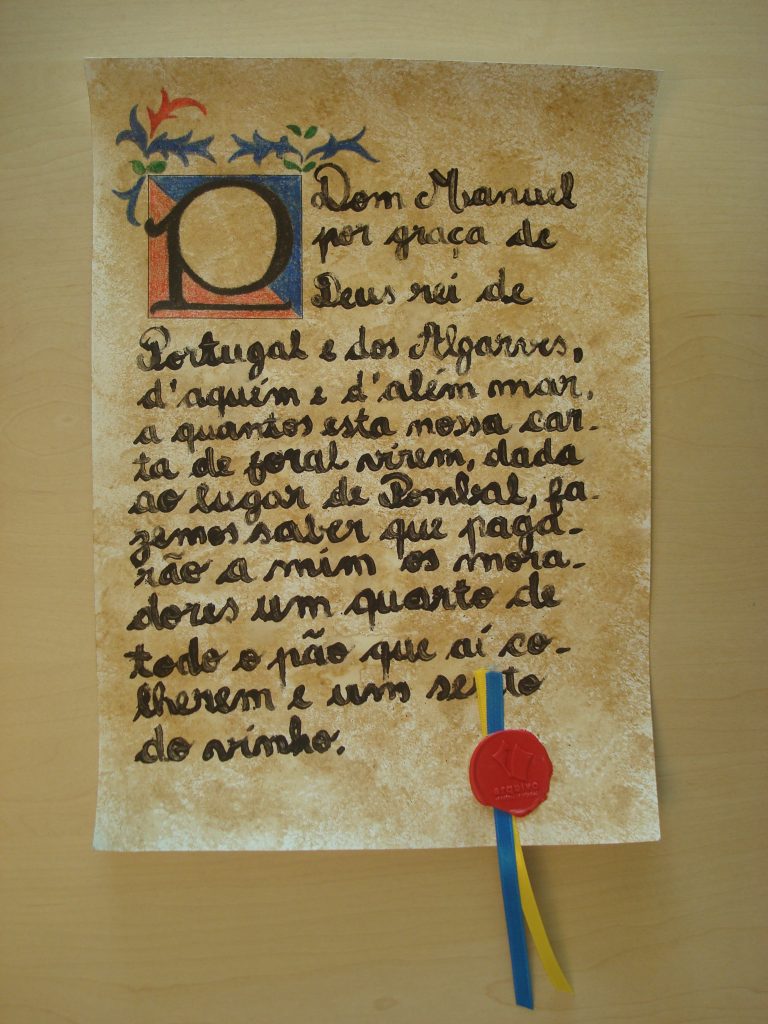 Dom Manuel
por graça de
Deus rei de
Portugal e dos Algarves,
d'aquém e d'além mar,
a quantos esta nossa car-
ta de foral virem, dada
ao lugar de Pombal, fa-
zemos saber que paga-
rão a mim os mora-
dores um quarto de
todo o pão que aí co-
lherem e um sexto
do vinho.
arquivo